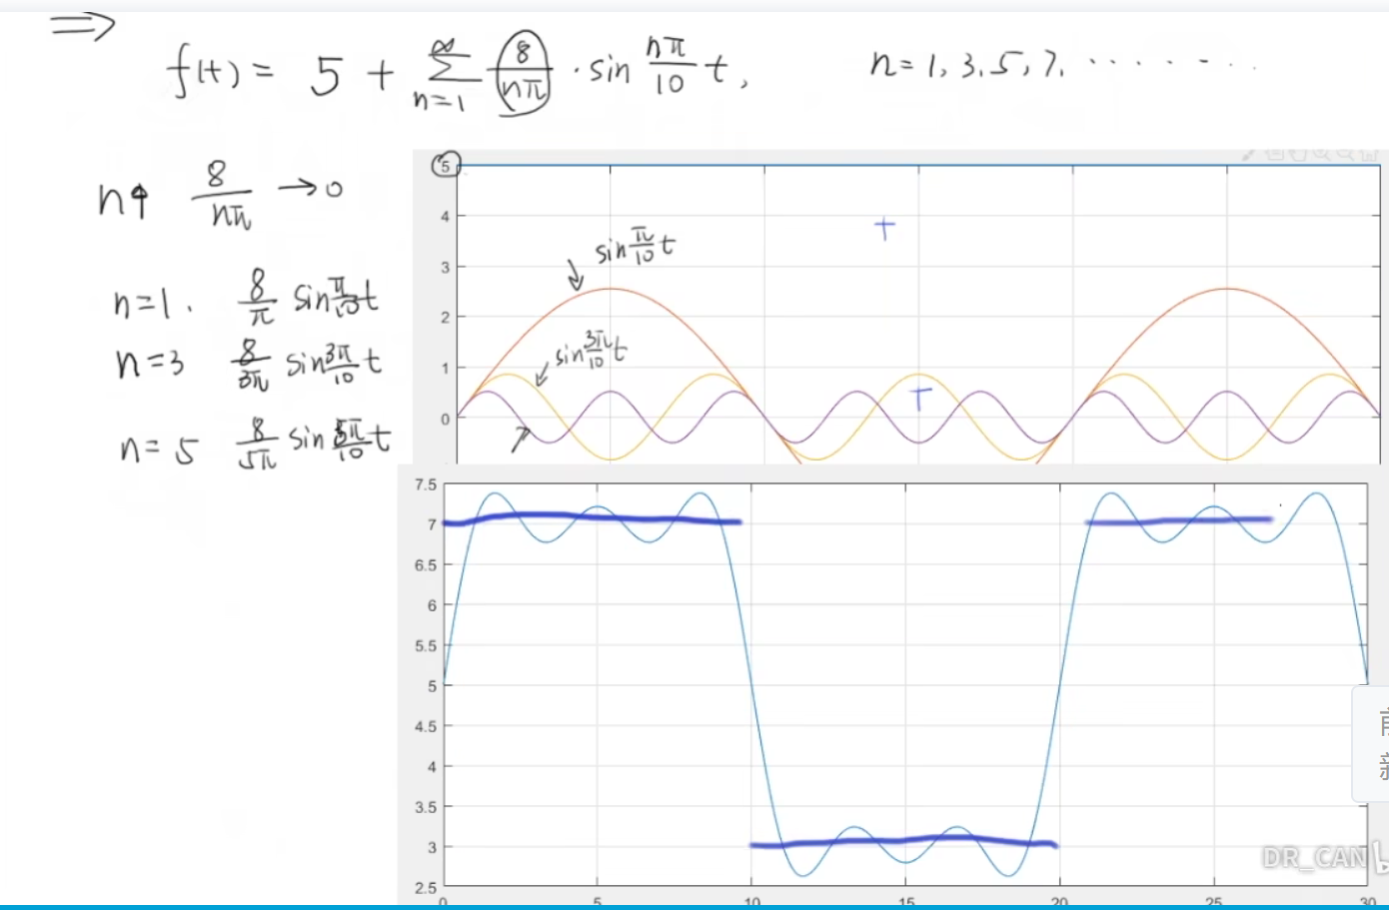 ⇒
f(t) = 5 + ∞ Σ n=1 8/nπ · sin nπ/10 t, n = 1, 3, 5, 7, ········
n↑ 8/nπ → 0
n=1. 8/π sin π/10 t
n=3 8/3π sin 3π/10 t
n=5 8/5π sin 5π/10 t
5
4
3
2
1
0
sin π/10 t
sin 3π/10 t
7.5
7
6.5
6
5.5
5
4.5
4
3.5
3
2.5
0 5 10 15 20 25 30
DR_CAN